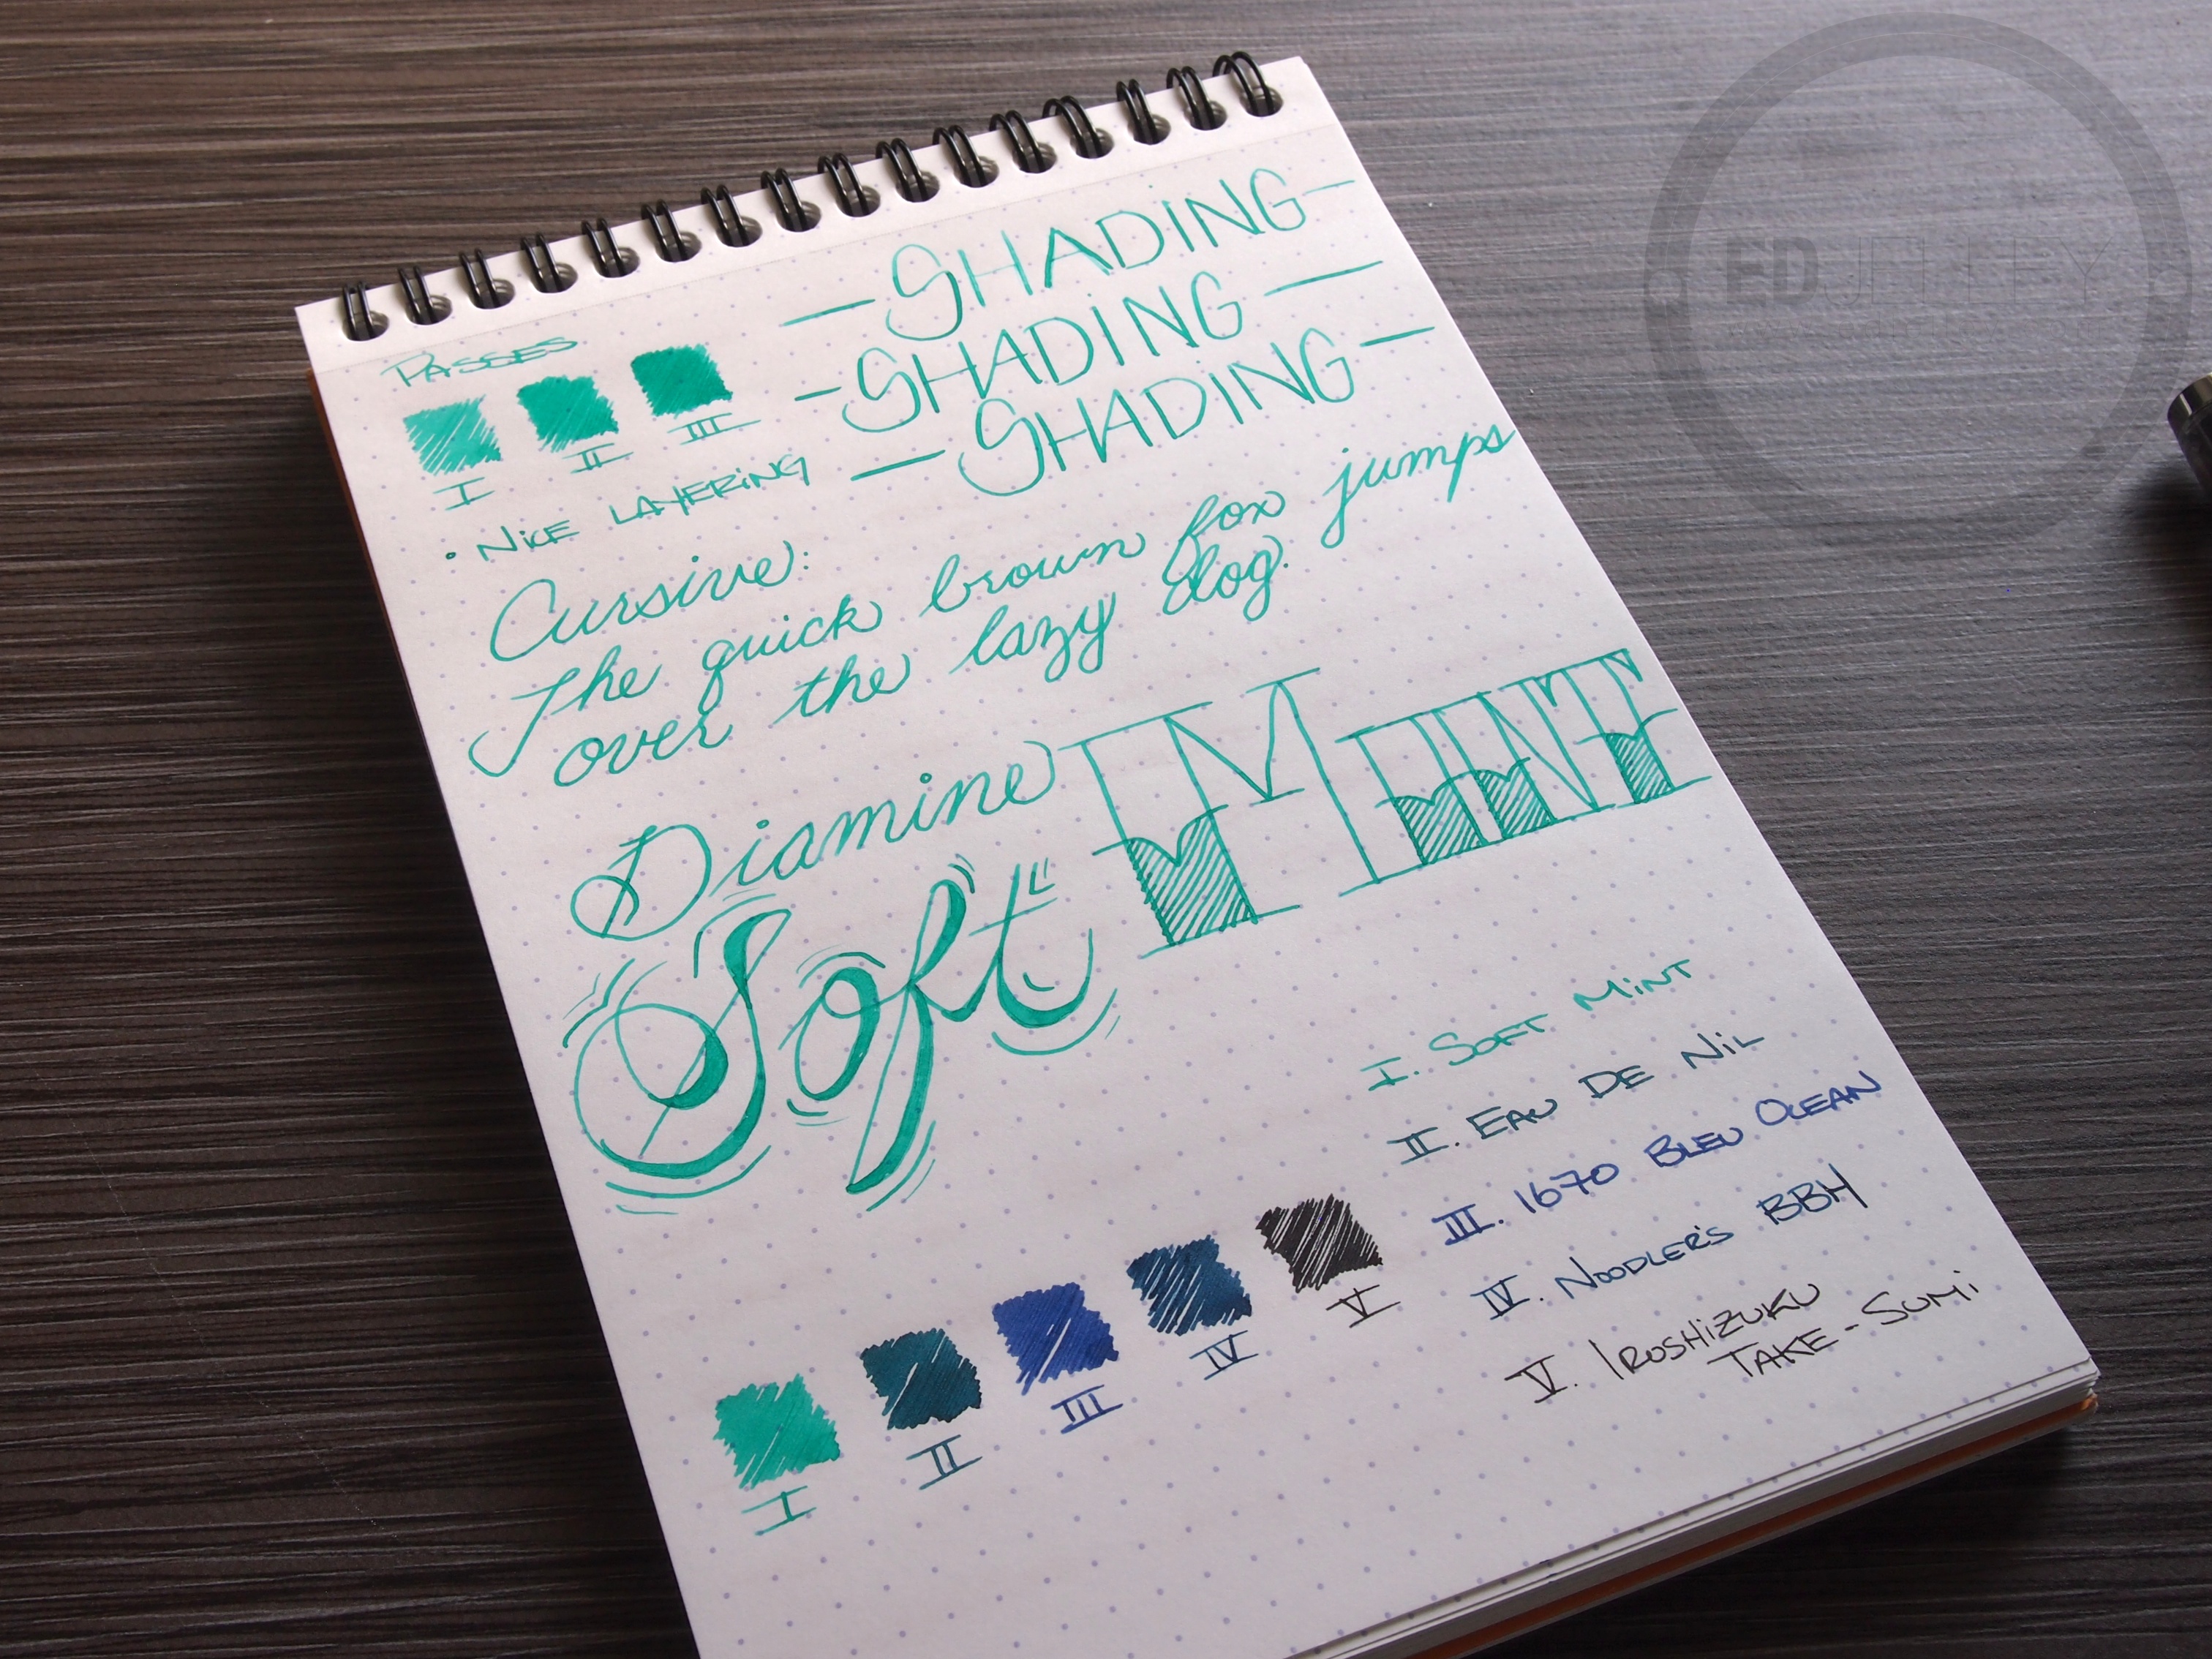 PASSES
I II III
• NiCE LAYERiNG
-SHADING-
-SHADING-
-SHADING-
Cursive:
The quick brown fox jumps
over the lazy dog.
Diamine
Soft MINT
I. SOFT MiNT
II. EAU DE NiL
III. 1670 BLEU OCEAN
IV. NOODLER'S BBH
V. IROSHiZUKU
TAKE-SUMi
I II III IV V
ED JELLEY